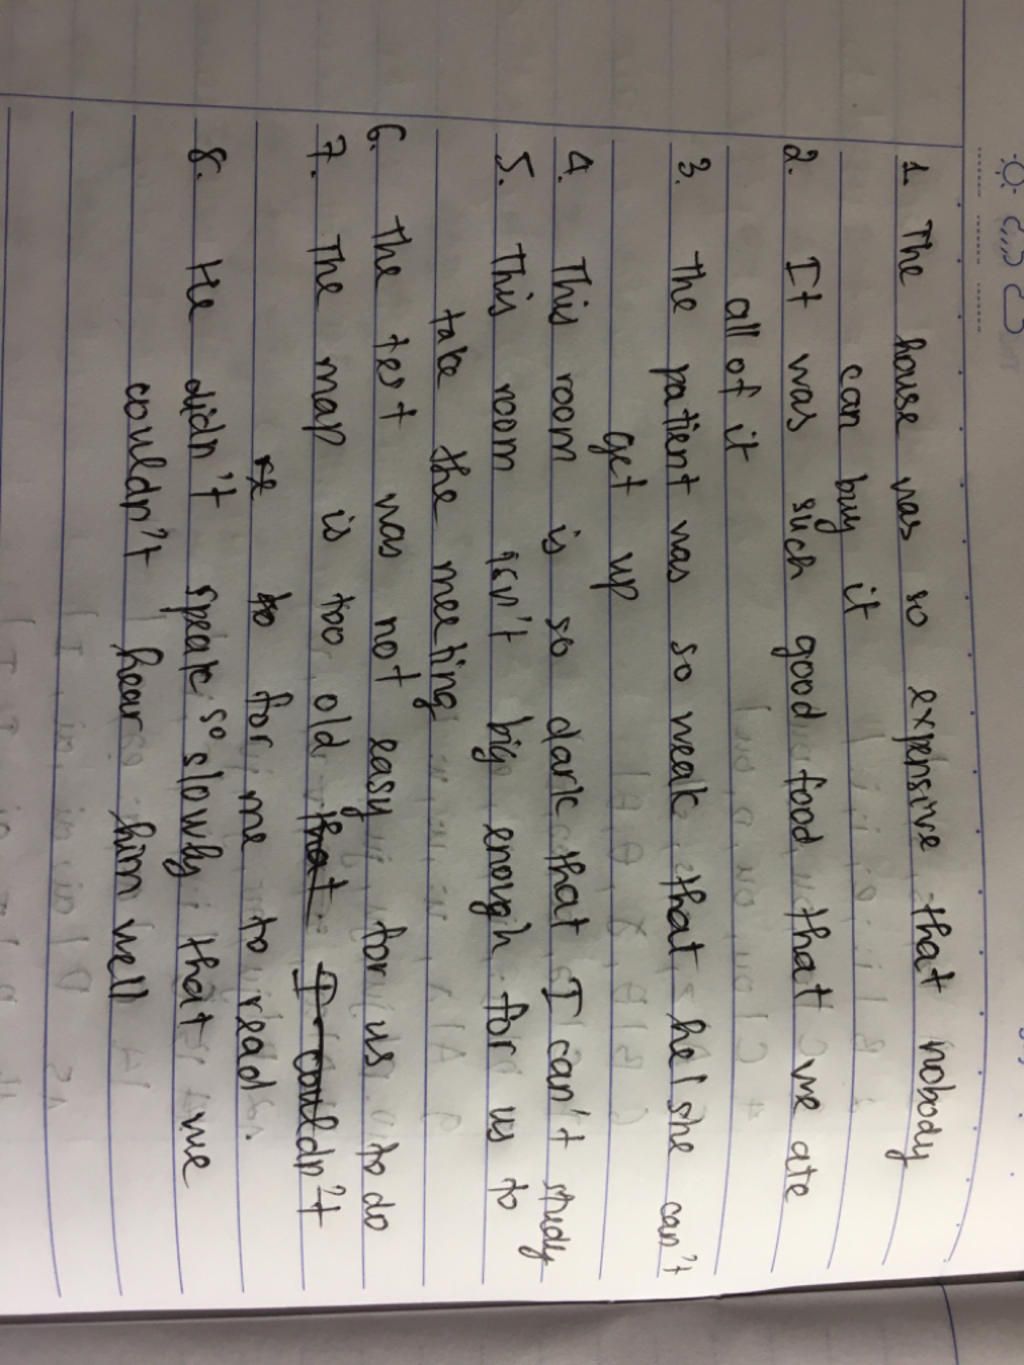 1. The house was so expensive that nobody
can buy it
2. It was such good food that we ate
all of it
3. The patient was so weak that he/she can't
get up
4. This room is so dark that I can't study
5. This room isn't big enough for us to
take the meeting
6. The test was not easy for us to do
7. The map is too old that I couldn't
re to for me to read.
8. He didn't speak so slowly that we
couldn't hear him well